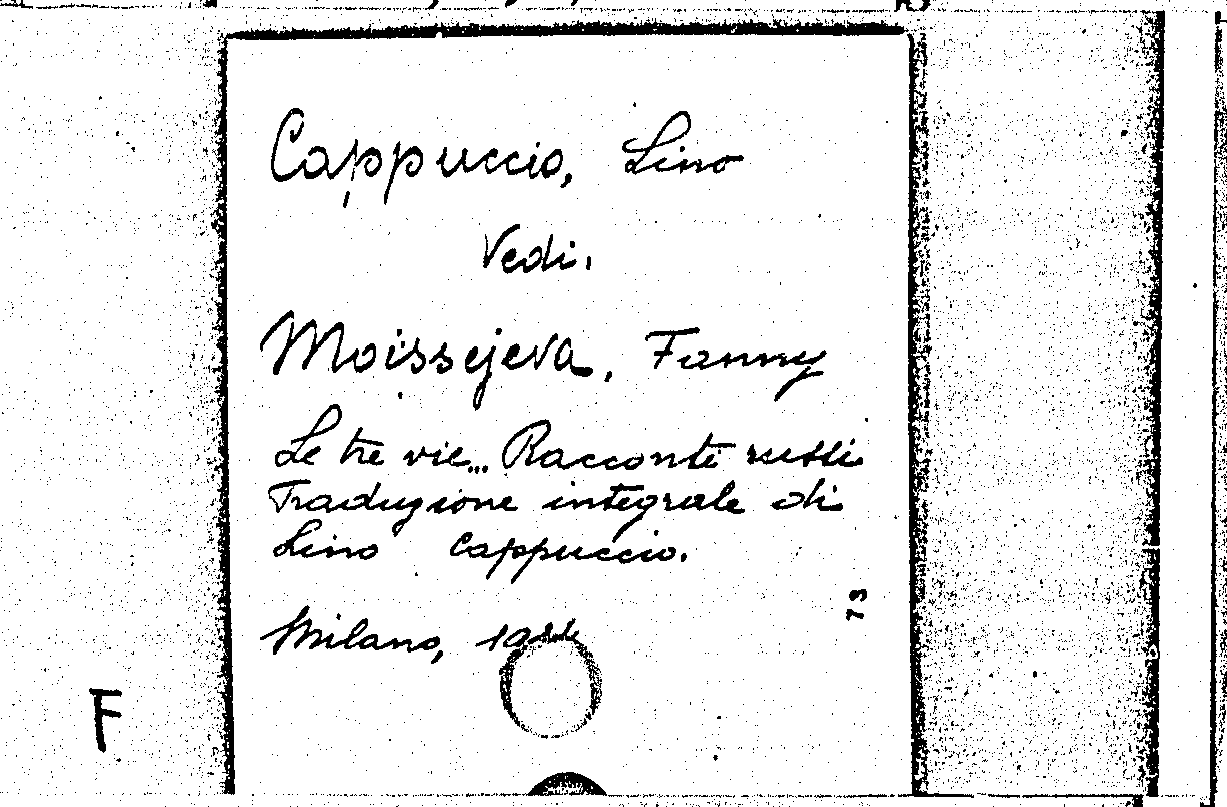 Cappuccio, Lino
Vedi.
Moissejeva, Fanny
Le tre vie... Racconti russi
Traduzione integrale di
Lino Cappuccio.
Milano,
73
F